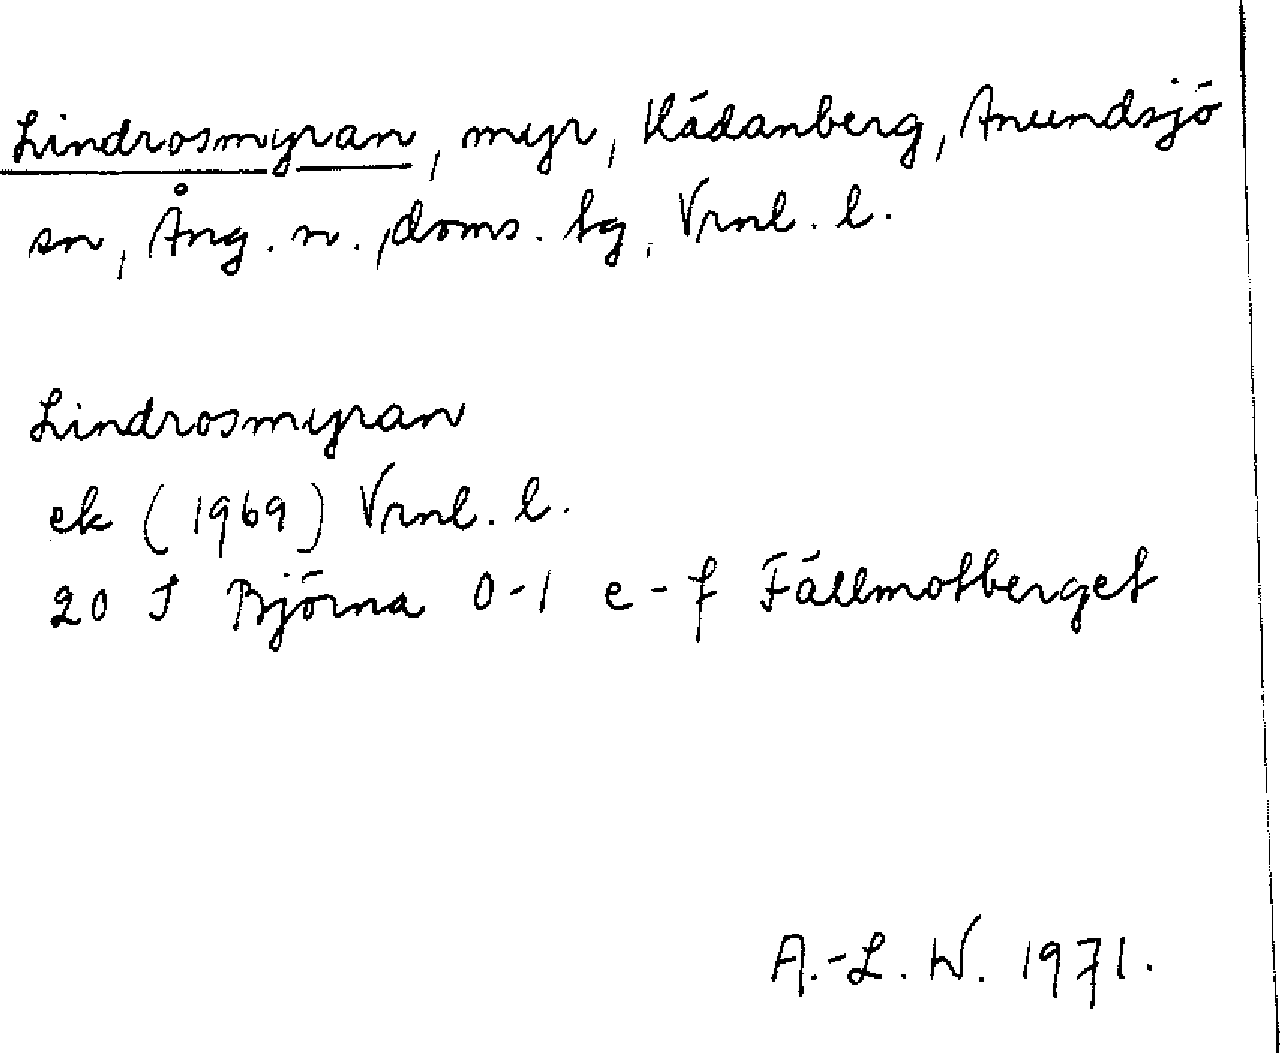 Lindrosmyran, myr, Kådanberg, Anundsjö
sn, Ång. n., doms. tg, Vrnl. l.
Lindrosmyran
ek (1969) Vrnl. l.
20 J Björna 0-1 e-f Fällmotberget
A.-L. W. 1971.